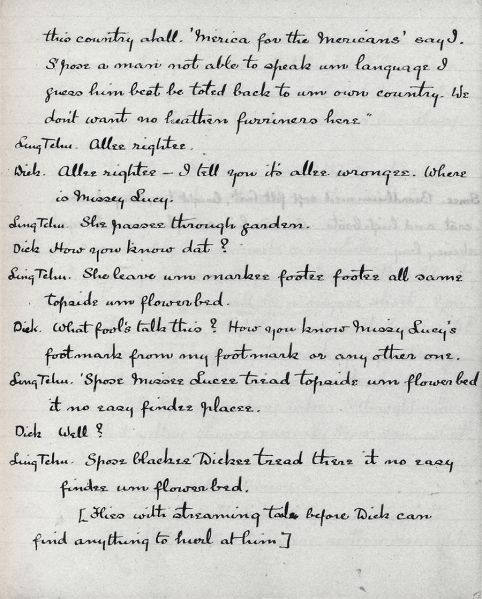 this country atall. 'Merica for the Mericans' say I.
S'pose a man not able to speak um language I
guess him best be toted back to um own country. We
don't want no heathen furriners here"
Ling Tchu. Allee rightee.
Dick. Allee rightee – I tell you it's allee wrongee. Where
is Missey Lucy.
Ling Tchu. She passee through garden.
Dick How you know dat?
Ling Tchu. She leave um markee footee footee all same
topside um flowerbed.
Dick. What fool's talk this? How you know Missy Lucy's
footmark from my footmark or any other one.
Ling Tchu. 'Spose Missee Lucee tread topside um flowerbed
it no easy findee placee.
Dick Well?
Ling Tchu. Spose blackee Dickee tread there it no easy
findee um flowerbed.
[Flies with streaming tale before Dick can
find anything to hurl at him]